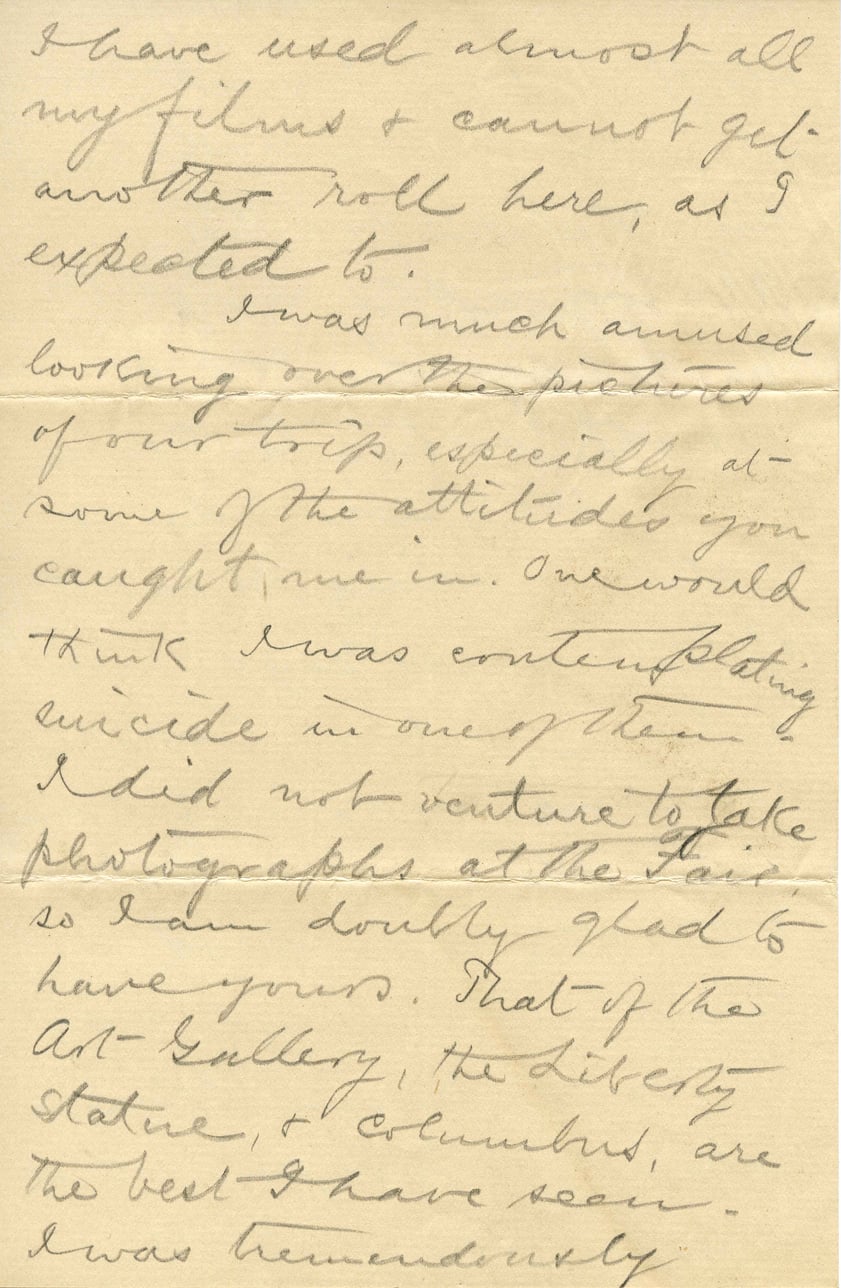 I have used almost all
my films & cannot get
another roll here, as I
expected to.
I was much amused
looking over the pictures
of our trip, especially at
some of the attitudes you
caught me in. One would
think I was contemplating
suicide in one of them.
I did not venture to take
photographs at the Fair,
so I am doubly glad to
have yours. That of the
Art Gallery, the Liberty
statue, & Columbus, are
the best I have seen.
I was tremendously